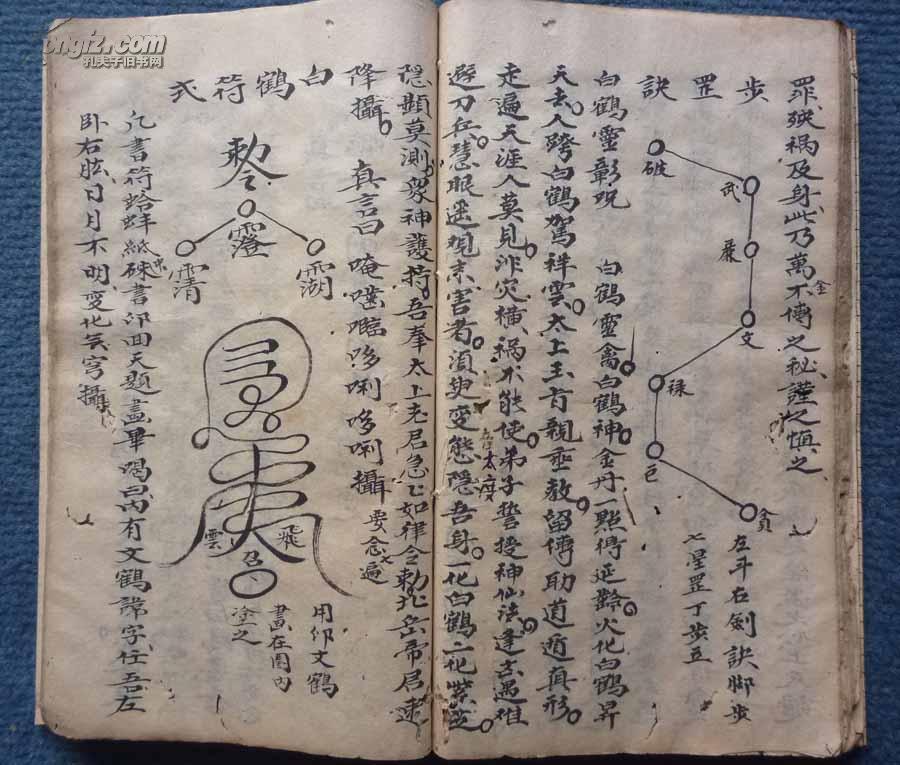 罪殃祸及身此乃萬金不傳之秘謹之慎之
步罡訣
破
武
文
祿
巨
貪
左斗右劍訣脚步
七星罡丁步立
白鶴靈彰咒 白鶴靈禽白鶴神金丹一點得延齡火化白鶴昇
天去人跨白鶴駕祥雲太上玉旨親垂教留傳助道遁真形
走遍天涯人莫見非灾橫祸不能使弟子誓授神仙法逢吉遇难
避刀兵慧眼遥观未害者須臾变態隱吾身一化白鶴二化紫芝
太度
隱顯莫測衆神護持吾奉太上老君急急如律令勅 岳帝君速
降攝 真言曰唵 哆唎哆唎攝
要念七遍
白鶴符式
勅令
澄
清
湖
雲
飛
用印文鶴
畫在圈内
塗之
凡書符 紙硃書印面天題畫畢喝曰丙有文鶴 字任吾左
卧右肱日月不明变化無穹攝
孔夫子旧书网